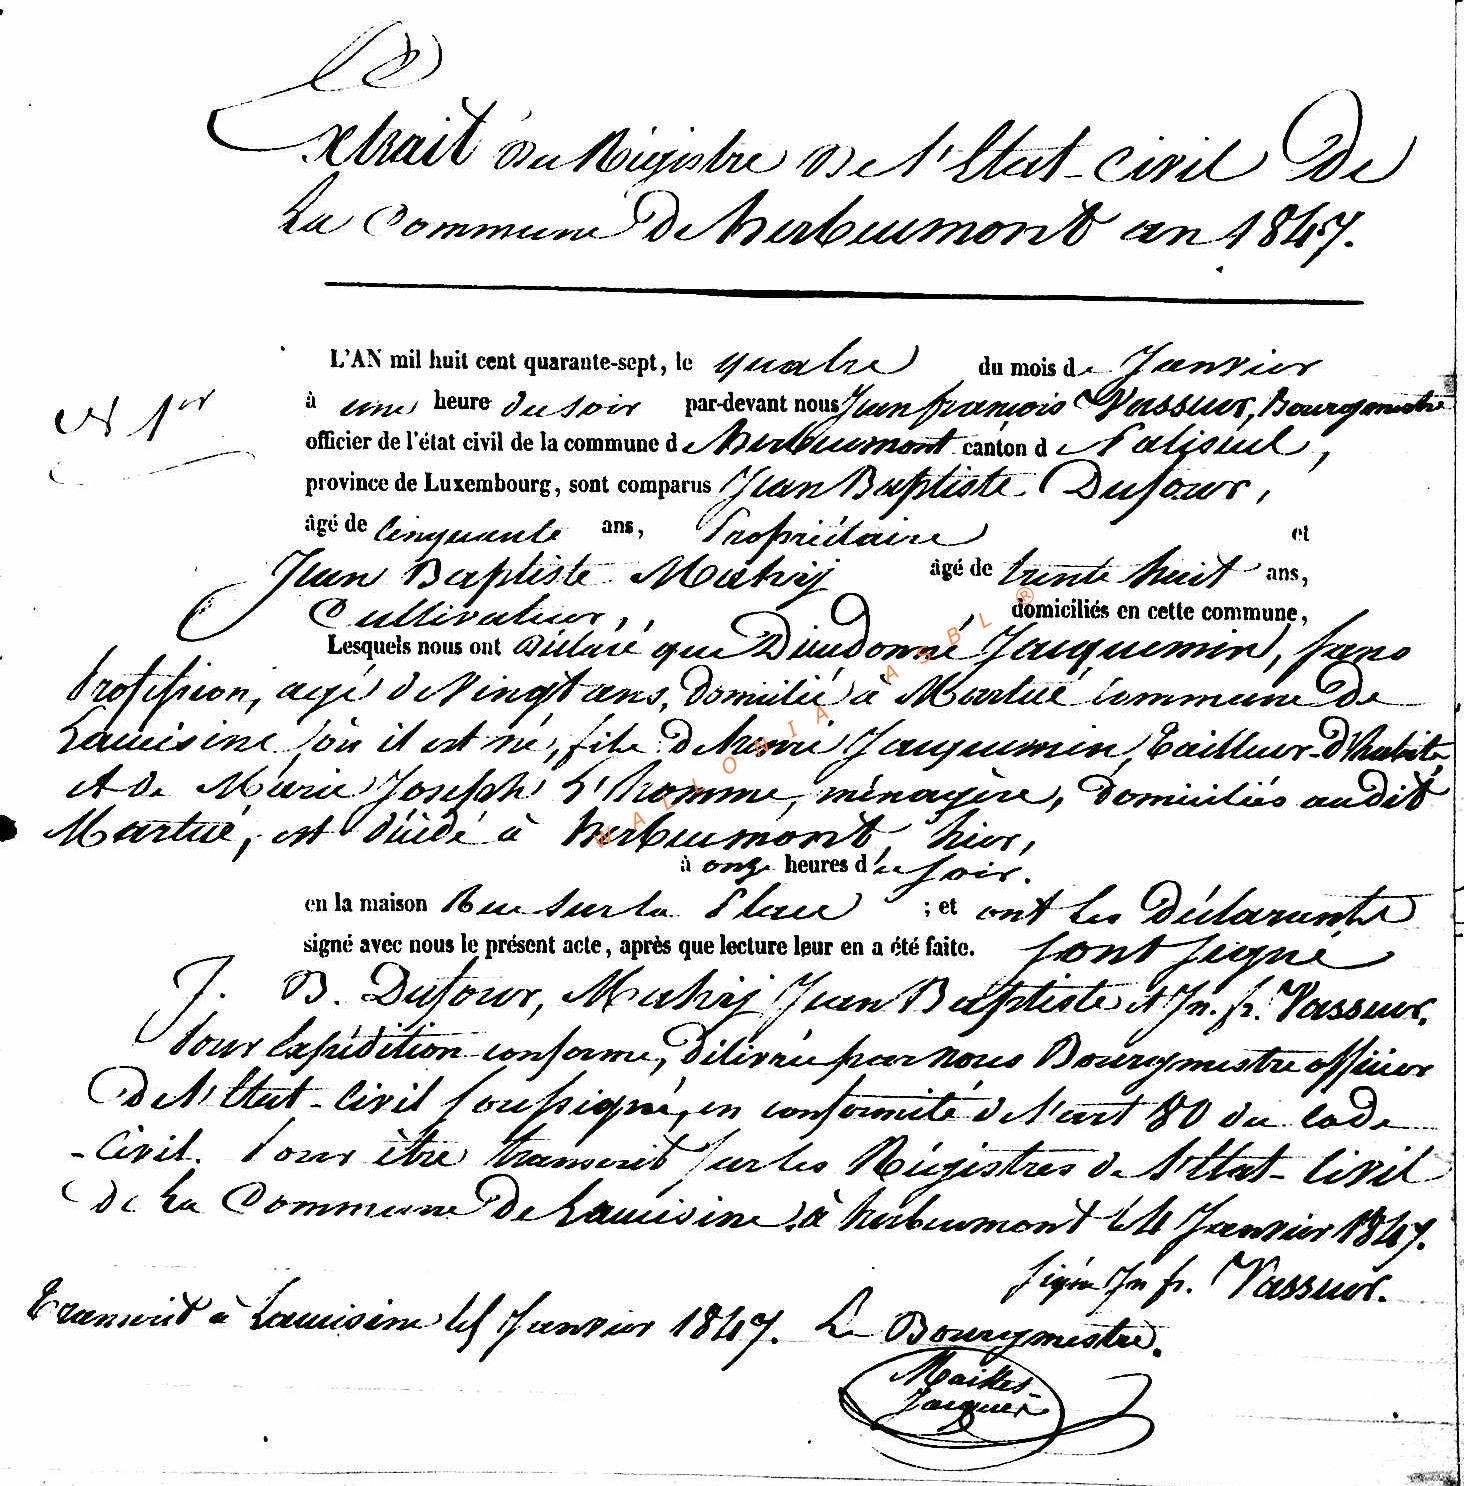 Extrait du Régistre de l'Etat-Civil de
La Commune de herbeumont an 1847.
L'AN mil huit cent quarante-sept, le quatre du mois de Janvier
N 1er
à une heure du soir par-devant nous Jean françois Vasseur, Bourgmestre
officier de l'état civil de la commune d herbeumont canton d Paliseul,
province de Luxembourg, sont comparus Jean Baptiste Dufour,
âgé de Cinquante ans, Propriétaire et
Jean Baptiste Mathij âgé de trente huit ans,
Cultivateur, domiciliés en cette commune,
Lesquels nous ont déclaré que Dieudonné Jacquemin, sans
Profession, agé de Vingt ans, domicilié à Martué Commune de
Lacuisine, où il est né, fils de henri Jacquemin, Tailleur-d'habits
et de Marie Joseph L'homme, ménagère, domiciliés audit
Martué, est décédé à herbeumont, hier,
à onze heures du soir.
en la maison Rue sur la Place ; et ont les déclarants
signé avec nous le présent acte, après que lecture leur en a été faite. sont signé
J. B. Dufour, Mathij Jean Baptiste et Jn. fr. Vasseur.
Pour Expédition conforme, délivrée par nous Bourgmestre officier
de l'Etat-Civil soussigné, en conformité de l'art 80 du Code
-Civil. Pour être transcrit sur les Régistres de l'Etat-Civil
de La Commune de Lacuisine. à herbeumont le 4 Janvier 1847.
signé Jn fr. Vasseur.
Transcrit à Lacuisine le 5 Janvier 1847. Le Bourgmestre.
Jacques
WALLONIA ASBL ®